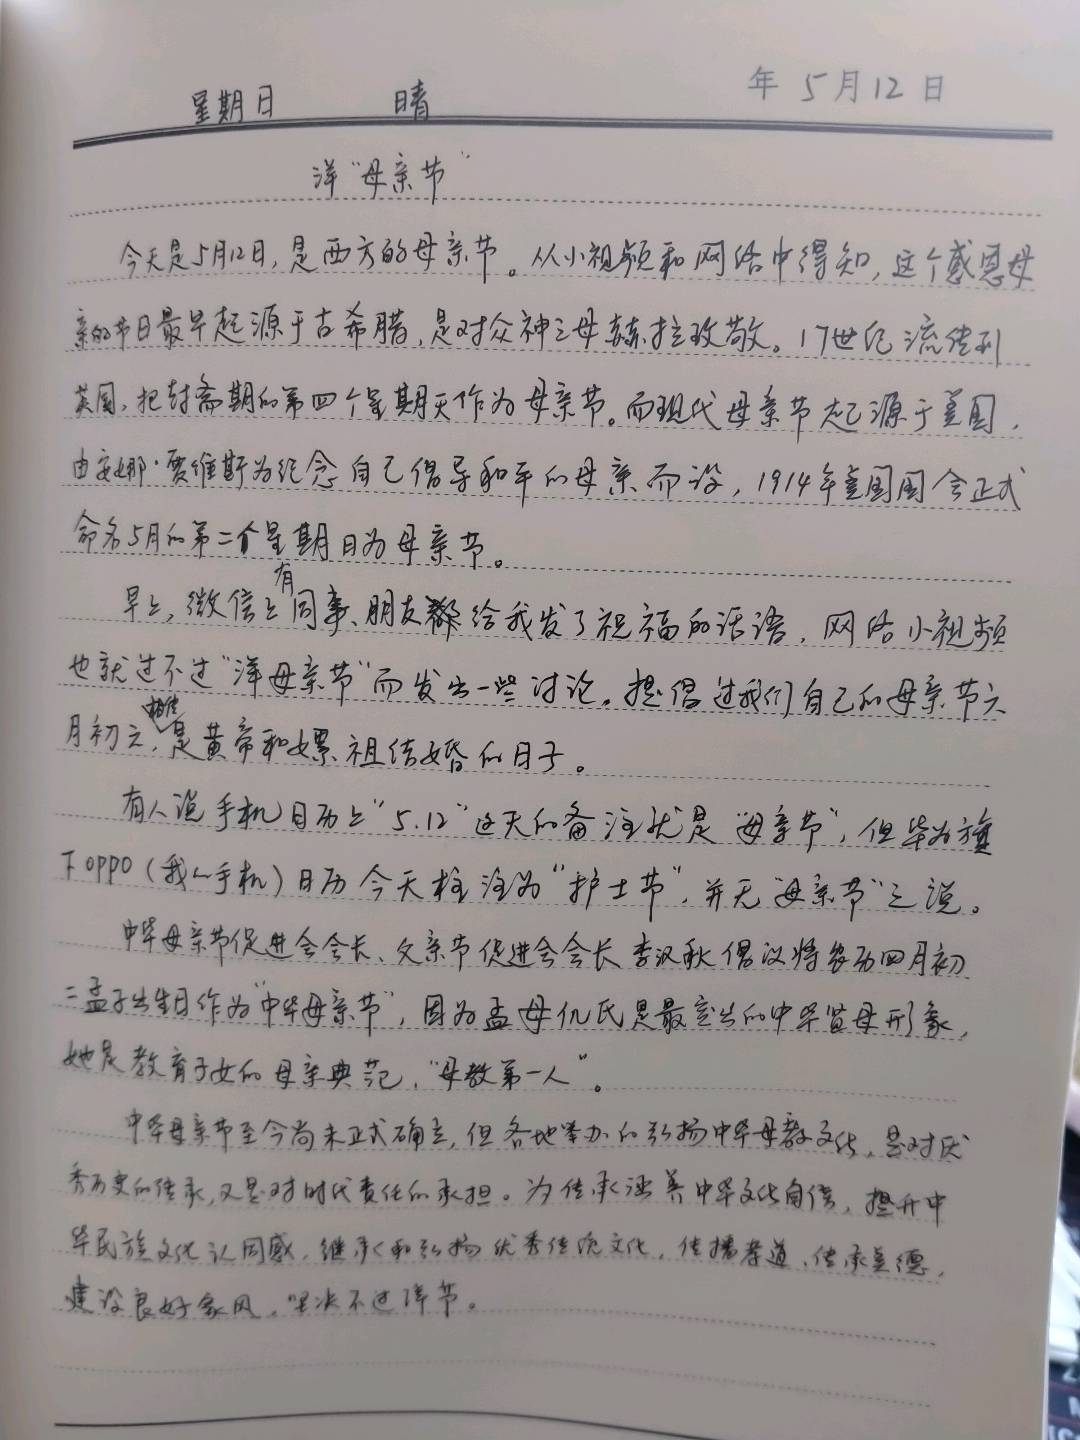 星期日 晴 年 5月12日
洋“母亲节”
今天是5月12日,是西方的母亲节。从小视频和网络中得知,这个感恩母
亲的节日最早起源于古希腊,是对众神之母赫拉致敬。17世纪流传到
英国,把封斋期的第四个星期天作为母亲节。而现代母亲节起源于美国,
由安娜·贾维斯为纪念自己倡导和平的母亲而设,1914年美国国会正式
命名5月的第二个星期日为母亲节。
早上,微信上有同事、朋友给我发了祝福的话语,网络小视频
也就过不过“洋母亲节”而发出一些讨论。提倡过我们自己的母亲节六
月初六,相传是黄帝和嫘祖结婚的日子。
有人说手机日历上“5.12”这天的备注就是“母亲节”,但华为旗
下OPPO(我的手机)日历今天标注为“护士节”,并无“母亲节”之说。
中华母亲节促进会会长、父亲节促进会会长李汉秋倡议将农历四月初
二孟子出生日作为“中华母亲节”,因为孟母仉氏是最突出的中华贤母形象,
她是教育子女的母亲典范,“母教第一人”。
中华母亲节至今尚未正式确立,但各地举办的弘扬中华母教文化,是对优
秀历史的传承,又是对时代责任的承担。为传承涵养中华文化自信,提升中
华民族文化认同感,继承和弘扬优秀传统文化,传播孝道、传承美德,
建设良好家风,坚决不过洋节。